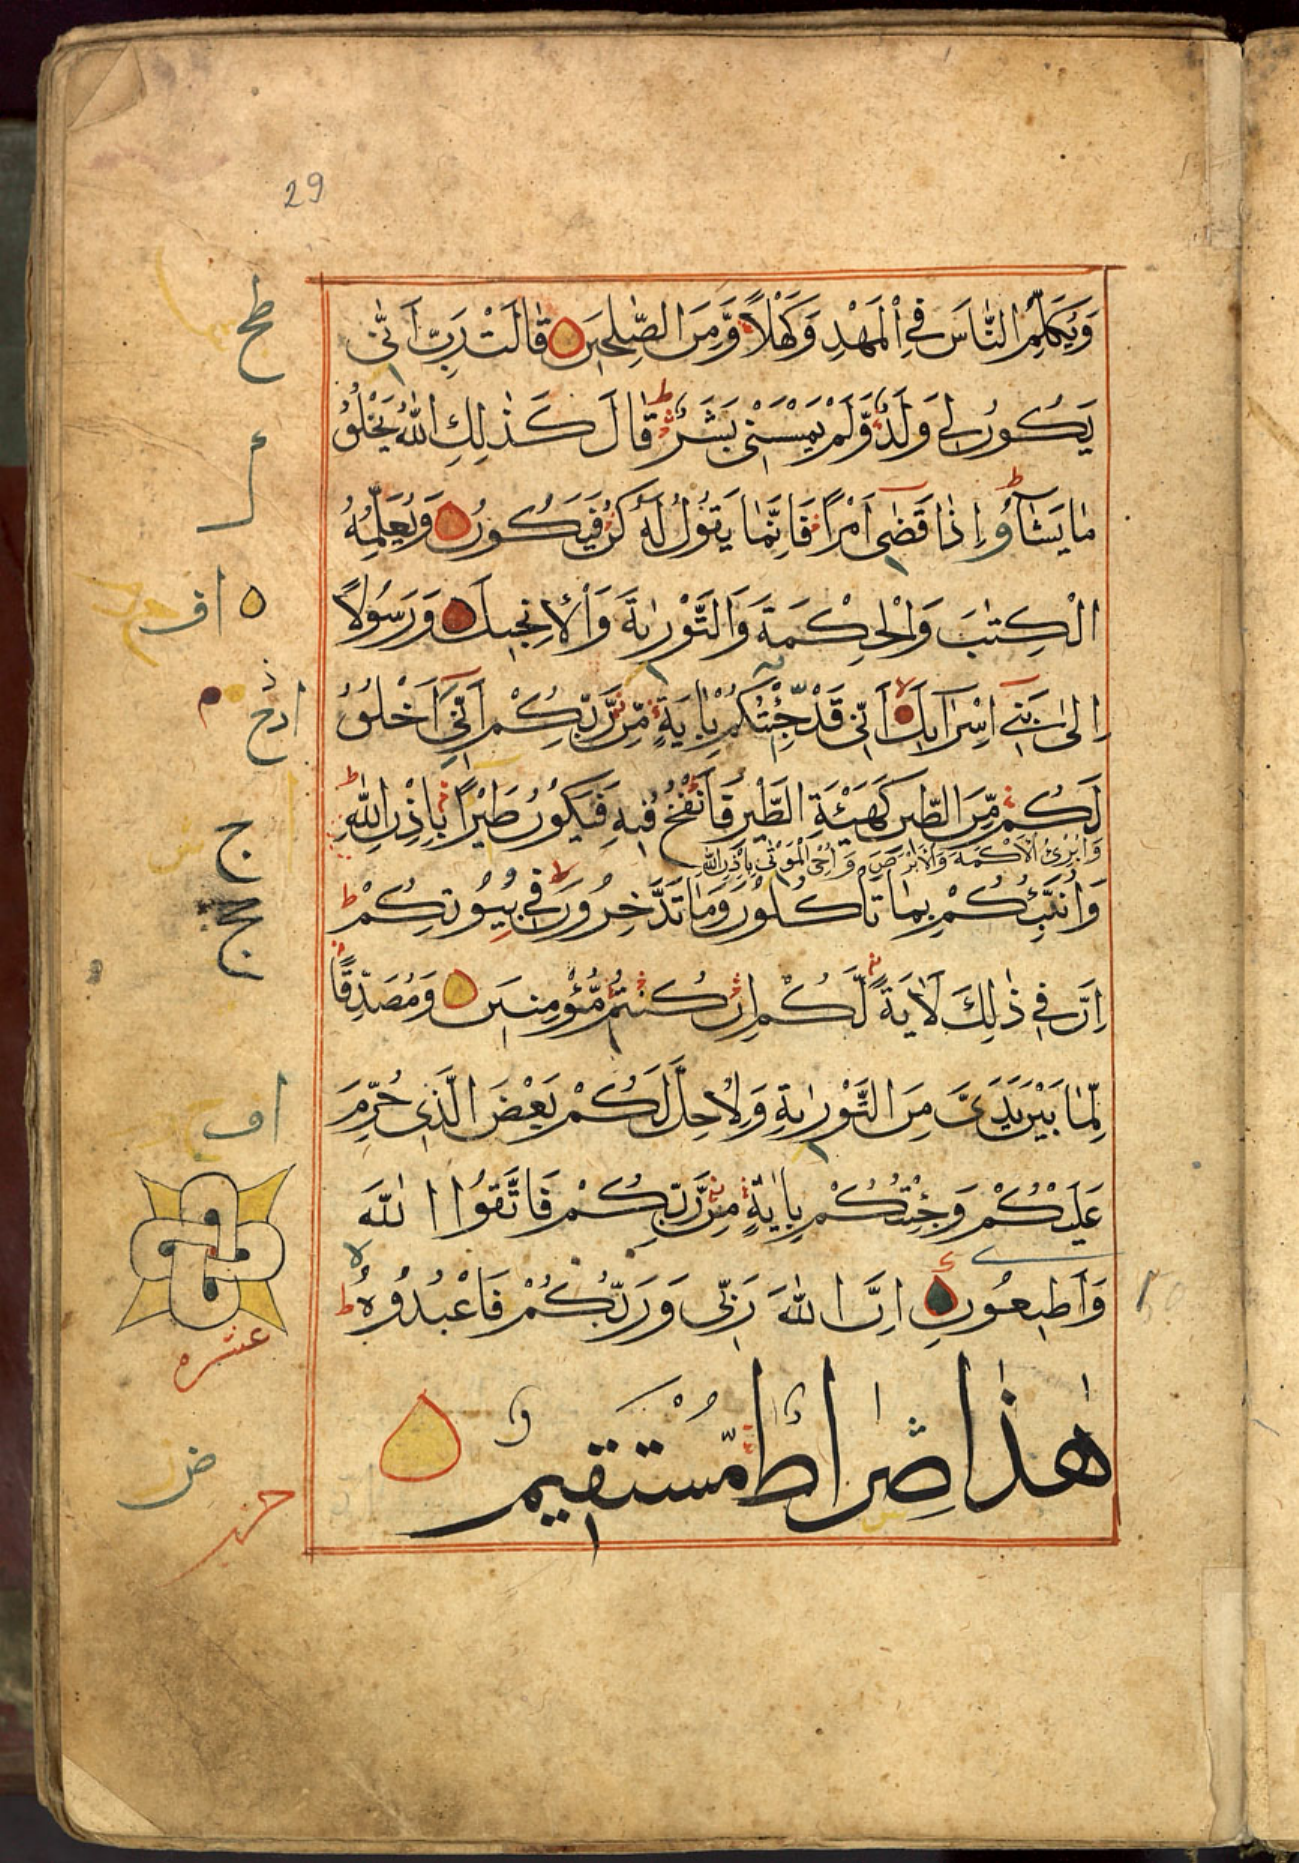 29
وَيُكَلِّمُ النَّاسَ فِي الْمَهْدِ وَكَهْلًا وَّمِنَ الصّٰلِحِيْنَ قَالَتْ رَبِّ اَنّٰى
يَكُوْنُ لِيْ وَلَدٌ وَّلَمْ يَمْسَسْنِيْ بَشَرٌ قَالَ كَذٰلِكِ اللّٰهُ يَخْلُقُ
مَا يَشَآءُ اِذَا قَضٰى اَمْرًا فَاِنَّمَا يَقُوْلُ لَهٗ كُنْ فَيَكُوْنُ وَيُعَلِّمُهُ
الْكِتٰبَ وَالْحِكْمَةَ وَالتَّوْرٰىةَ وَالْاِنْجِيْلَ وَرَسُوْلًا
اِلٰى بَنِيْ اِسْرَآئِيْلَ اَنِّيْ قَدْ جِئْتُكُمْ بِاٰيَةٍ مِّنْ رَّبِّكُمْ اَنِّيْ اَخْلُقُ
لَكُمْ مِّنَ الطِّيْنِ كَهَيْئَةِ الطَّيْرِ فَاَنْفُخُ فِيْهِ فَيَكُوْنُ طَيْرًا بِاِذْنِ اللّٰهِ
وَاُبْرِئُ الْاَكْمَهَ وَالْاَبْرَصَ وَاُحْيِ الْمَوْتٰى بِاِذْنِ اللّٰهِ
وَاُنَبِّئُكُمْ بِمَا تَاْكُلُوْنَ وَمَا تَدَّخِرُوْنَ فِيْ بُيُوْتِكُمْ
اِنَّ فِيْ ذٰلِكَ لَاٰيَةً لَّكُمْ اِنْ كُنْتُمْ مُّؤْمِنِيْنَ وَمُصَدِّقًا
لِّمَا بَيْنَ يَدَيَّ مِنَ التَّوْرٰىةِ وَلِاُحِلَّ لَكُمْ بَعْضَ الَّذِيْ حُرِّمَ
عَلَيْكُمْ وَجِئْتُكُمْ بِاٰيَةٍ مِّنْ رَّبِّكُمْ فَاتَّقُوا اللّٰهَ
وَاَطِيْعُوْنِ اِنَّ اللّٰهَ رَبِّيْ وَرَبُّكُمْ فَاعْبُدُوْهُ
هٰذَا صِرَاطٌ مُّسْتَقِيْمٌ
طح
اف
ج
ج
اف
عشره
ض